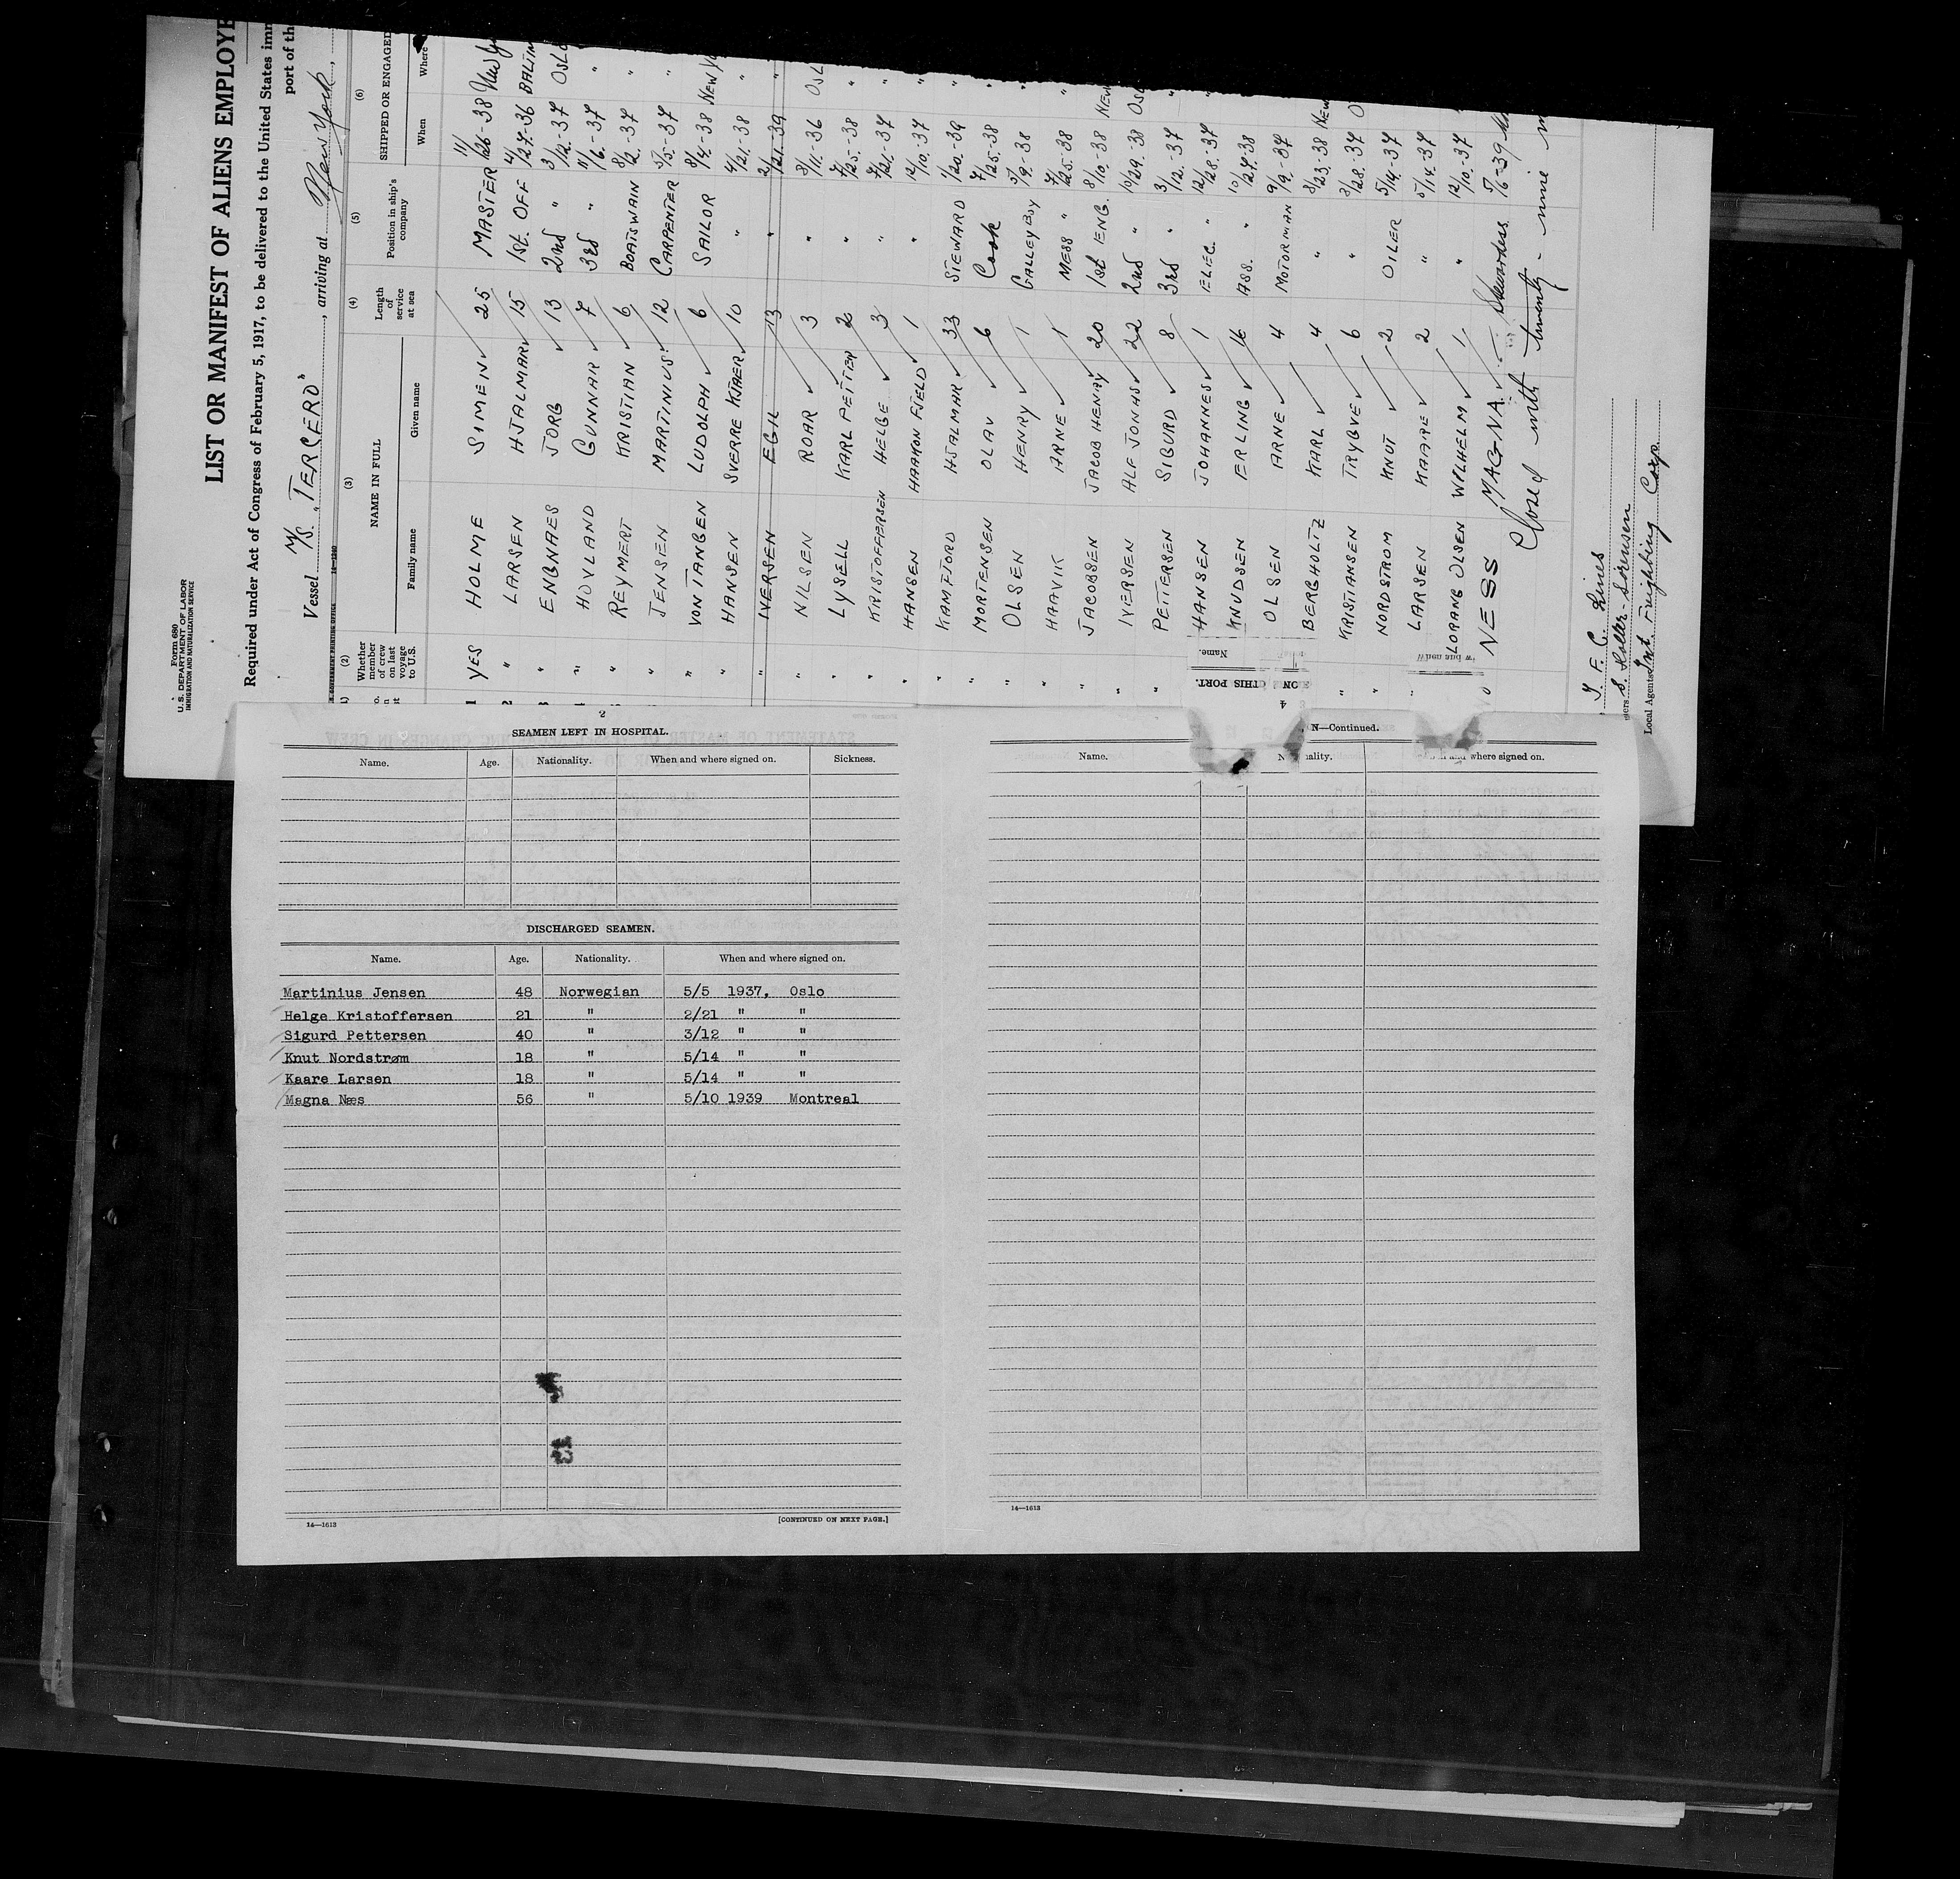 Form 680
U.S. DEPARTMENT OF LABOR
IMMIGRATION AND NATURALIZATION SERVICE
LIST OR MANIFEST OF ALIENS EMPLOYE
Required under Act of Congress of February 5, 1917, to be delivered to the United States imm
port of th
Vessel M/S. "TERCERO", arriving at New York,
(2) (3) (4) (5) (6)
Whether member of crew on last voyage to U.S. NAME IN FULL Length of service at sea Position in ship's company SHIPPED OR ENGAGED
Family name Given name When Where
1 YES HOLME SIMEN 25 MASTER 11/26-38 New Yo
2 " LARSEN HJALMAR 15 1st. OFF 4/27-36 BALTIM
3 " ENGNAES JORG 13 2nd " 3/12-37 OSLO
" HOVLAND GUNNAR 7 3rd " 11/6-37 "
" REYMERT KRISTIAN 6 BOATSWAIN 8/2-37 "
" JENSEN MARTINIUS 12 CARPENTER 5/5-37 "
" VON TANGEN LUDOLPH 6 SAILOR 9/4-38 NEW YO
" HANSEN SVERRE KJAER 10 " 4/21-38 "
" IVERSEN EGIL 13 " 2/21-39 "
" NILSEN ROAR 3 " 8/11-36 OSL
" LYSELL KARL PETTER 2 " 7/25-38 "
" KRISTOFFERSEN HELGE 3 " 7/21-37 "
" HANSEN HAAKON FJELD 1 " 12/10-37 "
" KAMFJORD HJALMAR 33 STEWARD 1/20-39 "
" MORTENSEN OLAV 6 Cook 7/25-38 "
" OLSEN HENRY 1 GALLEY BOY 5/9-38
" HAAVIK ARNE 1 MESS " 7/25-38 "
" JACOBSEN JACOB HENRY 20 1st ENG. 8/10-38 NEW
" IVERSEN ALF JONAS 22 2nd " 10/29-38 OSL
" PETTERSEN SIGURD 8 3rd " 3/12-37 "
HANSEN JOHANNES 1 ELIEC. " 12/28-37 "
KNUDSEN ERLING 16 ASS. " 10/27-38
OLSEN ARNE 4 MOTORMAN 9/9-37
BERGHOLTZ KARL 4 " 8/23-38 NEW
" KRISTIANSEN TRYGVE 6 " 3/28-37 O
" NORDSTROM KNUT 2 OILER 5/14-37
" LARSEN KAARE 2 " 5/14-37
LORANG OLSEN WILHELM 1 " 12/10-37
NESS MAGNA Stewardess 5/6-39
Closed with twenty-nine
Y. F. C. Lines
S. Holter-Sorensen
Local Agents Int. Freighting Corp
Name.
THIS PORT.
2
SEAMEN LEFT IN HOSPITAL.
Name. Age. Nationality. When and where signed on. Sickness.
DISCHARGED SEAMEN.
Name. Age. Nationality. When and where signed on.
Martinius Jensen 48 Norwegian 5/5 1937, Oslo
Helge Kristoffersen 21 " 2/21 " "
Sigurd Pettersen 40 " 3/12 " "
Knut Nordstrøm 18 " 5/14 " "
Kaare Larsen 18 " 5/14 " "
Magna Næs 56 " 5/10 1939 Montreal
14—1613
[CONTINUED ON NEXT PAGE.]
N—Continued.
Name. where signed on.
14—1613